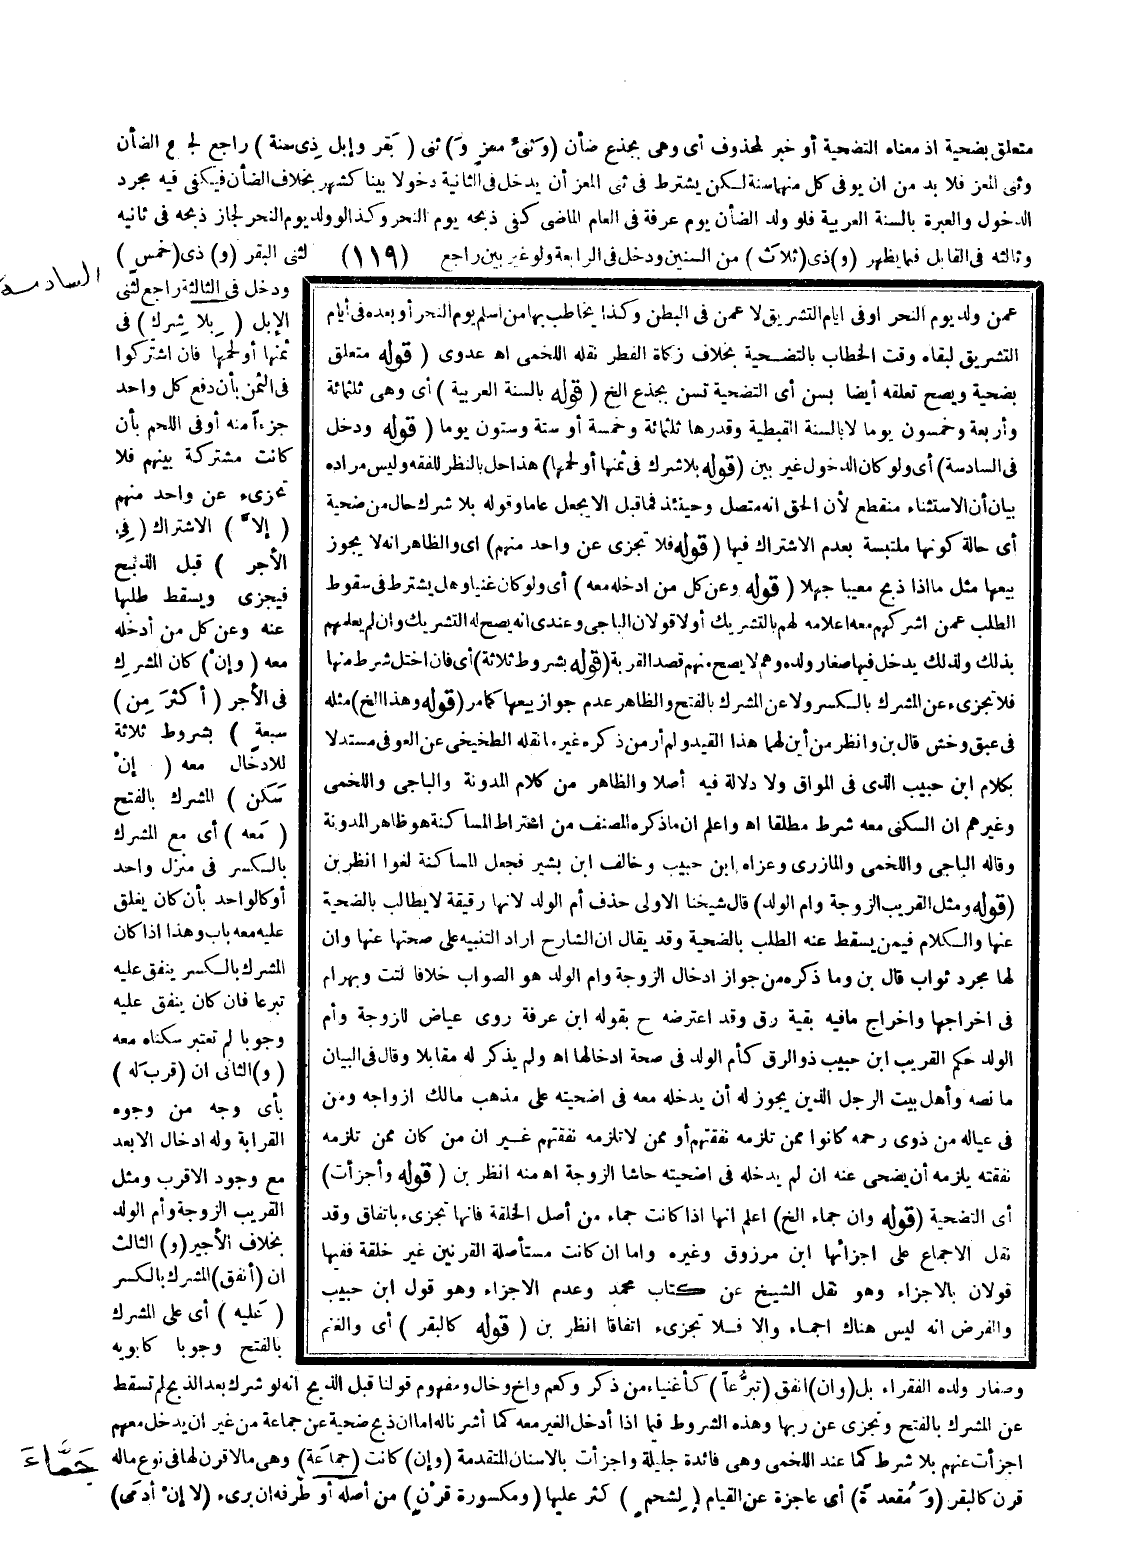 متعلق بضحية اذ معناه التضحية أو خبر لمحذوف أى وهى بجذع ضأن (وَثنىّ معزٍ وَ) ثنى (بَقر وإبل ذِى سنة) راجع لجذع الضأن
وثنى المعز فلا بد من ان يوفى كل منهاسنة لكن يشترط فى ثنى المعز أن يدخل فى الثانية دخولا بينا كشهر بخلاف الضأن فيكفى فيه مجرد
الدخول والعبرة بالسنة العربية فلو ولد الضأن يوم عرفة فى العام الماضى كفى ذبحه يوم النحر وكذا لو ولد يوم النحر لجاز ذبحه فى ثانيه
وثالثه فى القابل فيما يظهر (و) ذى (ثلاث) من السنين ودخل فى الرابعة ولو غير بين راجع (١١٩) لثنى البقر (و) ذى (خمس)
السادسة
ودخل فى الثالثة راجع لثنى
الإبل (بِلا شِرك) فى
ثمنها أو لحمها فان اشتركوا
فى الثمن بأن دفع كل واحد
جزءاً منه أو فى اللحم بأن
كانت مشتركة بينهم فلا
تجزىء عن واحد منهم
(إلاّ) الاشتراك (فِى
الأجر) قبل الذبح
فيجزى ويسقط طلبها
عنه وعن كل من أدخله
معه (وإنْ) كان المشرك
فى الأجر (أكثرَ مِن)
سبعةٍ) بشروط ثلاثة
للادخال معه (إنْ
سَكن) المشرك بالفتح
(مَعه) أى مع المشرك
بالكسر فى منزل واحد
أو كالواحد بأن كان يغلق
عليه معه باب وهذا اذا كان
المشرك بالكسر ينفق عليه
تبرعا فان كان ينفق عليه
وجوبا لم تعتبر سكناه معه
(و) الثانى ان (قرب له)
بأى وجه من وجوه
القرابة وله ادخال الابعد
مع وجود الاقرب ومثل
القريب الزوجة وأم الولد
بخلاف الأجير (و) الثالث
ان (أنفق) المشرك بالكسر
(عَليه) أى على المشرك
بالفتح وجوبا كأبويه
عمن ولد يوم النحر او فى ايام التشريق لا عمن فى البطن وكذا يخاطب بها من اسلم يوم النحر أو بعده فى أيام
التشريق لبقاء وقت الخطاب بالتضحية بخلاف زكاة الفطر نقله اللخمى اه عدوى (قوله متعلق
بضحية ويصح تعلقه أيضا بسن أى التضحية تسن بجذع الخ (قوله بالسنة العربية) أى وهى ثلثمائة
وأربعة وخمسون يوما لا بالسنة القبطية وقدرها ثلثمائة وخمسة أو ستة وستون يوما (قوله ودخل
فى السادسة) أى ولو كان الدخول غير بين (قوله بلا شرك فى ثمنها أو لحمها) هذا حل بالنظر للفقه وليس مراده
بيان أن الاستثناء منقطع لأن الحق انه متصل وحينئذ فما قبل الا يجعل عاما وقوله بلا شرك حال من ضحية
أى حالة كونها ملتبسة بعدم الاشتراك فيها (قوله فلا تجزى عن واحد منهم) اى والظاهر انه لا يجوز
بيعها مثل ما اذا ذبح معيبا جهلا (قوله وعن كل من ادخله معه) أى ولو كان غنيا وهل يشترط فى سقوط
الطلب عمن اشركهم معه اعلامه لهم بالتشريك أو لا قولان الباجى وعندى انه يصح له التشريك وان لم يعلمهم
بذلك ولذلك يدخل فيها صغار ولده وهم لا يصح منهم قصد القربة (قوله بشروط ثلاثة) أى فان اختل شرط منها
فلا تجزىء عن المشرك بالكسر ولا عن المشرك بالفتح والظاهر عدم جواز بيعها كما مر (قوله وهذا الخ) مثله
فى عبق وخش قال بن وانظر من أين لهما هذا القيد ولم أر من ذكره غيره انقله الطخيخى عن العوفى مستدلا
بكلام ابن حبيب الذى فى المواق ولا دلالة فيه أصلا والظاهر من كلام المدونة والباجى واللخمى
وغيرهم ان السكنى معه شرط مطلقا اه واعلم ان ما ذكره المصنف من اشتراط المساكنة هو ظاهر المدونة
وقاله الباجى واللخمى والمازرى وعزاه ابن حبيب وخالف ابن بشير فجعل المساكنة لغوا انظر بن
(قوله ومثل القريب الزوجة وام الولد) قال شيخنا الاولى حذف أم الولد لانها رقيقة لا يطالب بالضحية
عنها والكلام فيمن يسقط عنه الطلب بالضحية وقد يقال ان الشارح اراد التنبيه على صحتها عنها وان
لها مجرد ثواب قال بن وما ذكره من جواز ادخال الزوجة وام الولد هو الصواب خلافا لتت وبهرام
فى اخراجها واخراج مافيه بقية رق وقد اعترضه ح بقوله ابن عرفة روى عياض للزوجة وأم
الولد حكم القريب ابن حبيب ذو الرق كأم الولد فى صحة ادخالها اه ولم يذكر له مقابلا وقال فى البيان
ما نصه وأهل بيت الرجل الذين يجوز له أن يدخله معه فى اضحيته على مذهب مالك ازواجه ومن
فى عياله من ذوى رحمه كانوا ممن تلزمه نفقتهم أو ممن لا تلزمه نفقتهم غير ان من كان ممن تلزمه
نفقته يلزمه أن يضحى عنه ان لم يدخله فى اضحيته حاشا الزوجة اه منه انظر بن (قوله وأجزأت)
أى التضحية (قوله وان جماء الخ) اعلم انها اذا كانت جماء من أصل الخلقة فانها تجزىء باتفاق وقد
نقل الاجماع على اجزائها ابن مرزوق وغيره واما ان كانت مستأصلة القرنين غير خلقة ففيها
قولان بالاجزاء وهو نقل الشيخ عن كتاب محمد وعدم الاجزاء وهو قول ابن حبيب
والفرض انه ليس هناك ادماء والا فلا تجزىء اتفاقا انظر بن (قوله كالبقر) أى والغنم
وصغار ولده الفقراء بل (وان) انفق (تبرُّعاً) كأغنياء من ذكر وكعم واخ وخال ومفهوم قولنا قبل الذبح انه لو شرك بعد الذبح لم تسقط
عن المشرك بالفتح وتجزى عن ربها وهذه الشروط فيما اذا أدخل الغير معه كما أشرنا له اما ان ذبح ضحية عن جماعة من غير ان يدخل معهم
اجزأت عنهم بلا شرط كما عند اللخمى وهى فائدة جليلة واجزأت بالاسنان المتقدمة (وإن) كانت (جماعَة) وهى مالا قرن لها فى نوع ماله
جَمَّاءَ
قرن كالبقر (وَ مُقعدةً) أى عاجزة عن القيام (لِشحمٍ) كثر عليها (ومكسورة قرْنٍ) من أصله أو طرفه ان برىء (لا إنْ أدمَى)